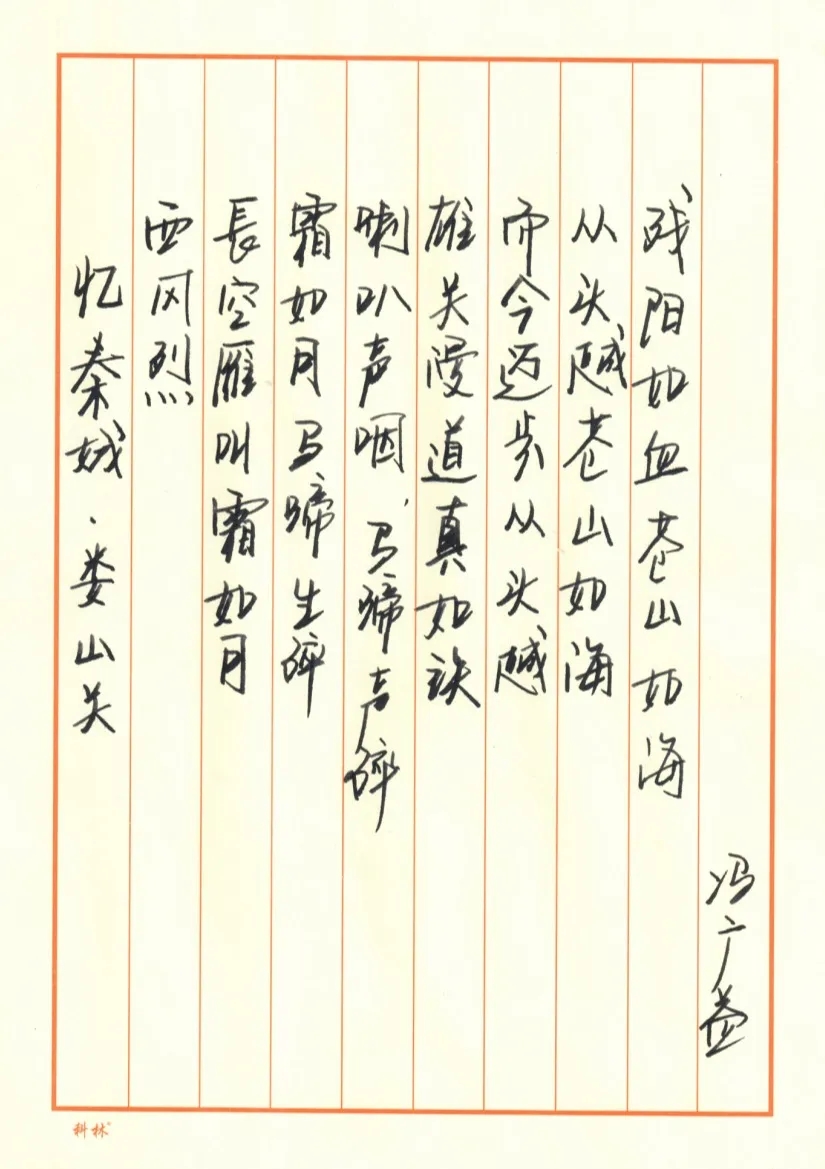 忆秦娥·娄山关
西风烈
長空雁叫霜如月
霜如月马蹄生碎
喇叭声咽、马蹄声碎
雄关漫道真如铁
而今迈步从头越
从头越苍山如海
残阳如血苍山如海
冯广益
科林